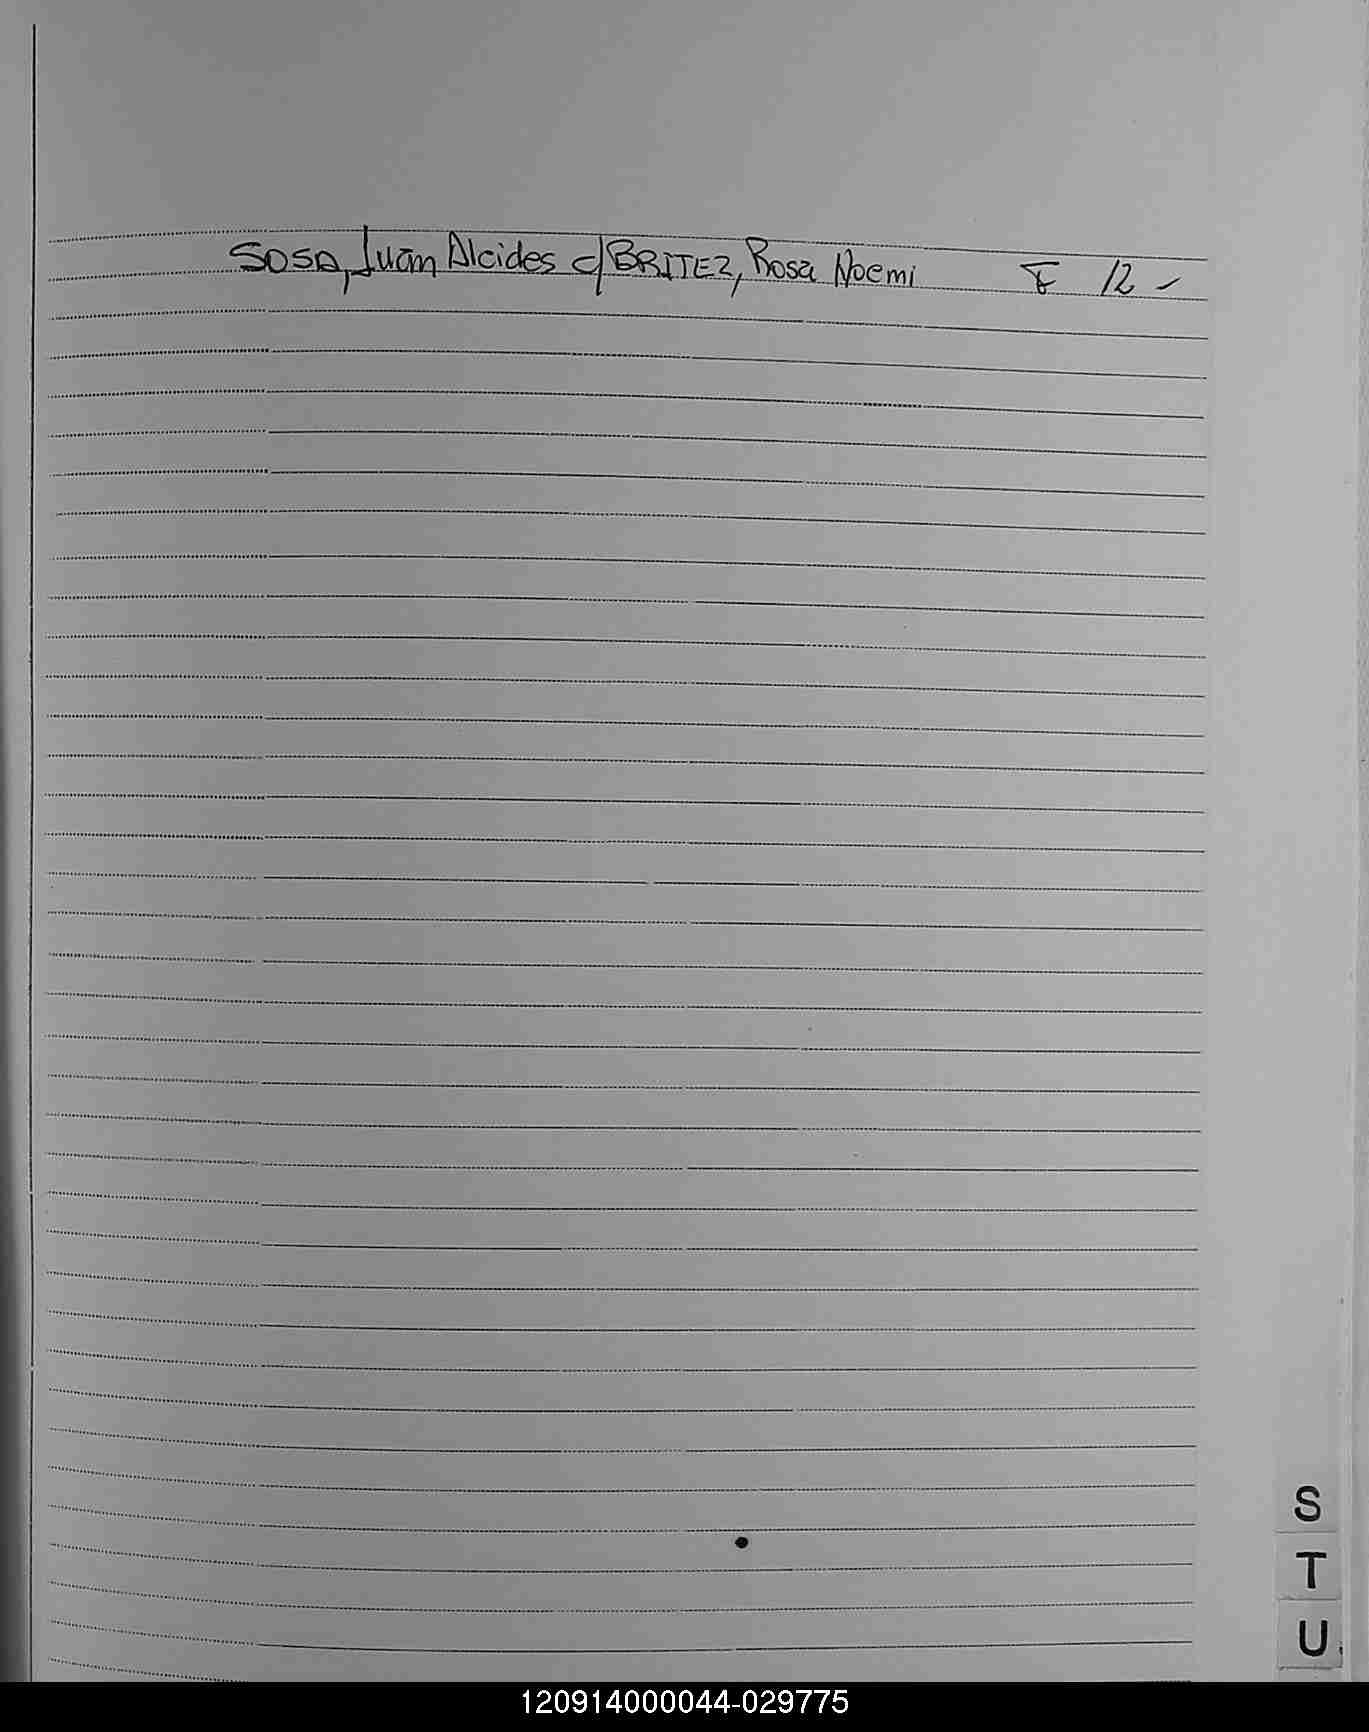 SOSA, Juan Alcides c/ BRITEZ, Rosa Noemi 12 -
S
T
U
120914000044-029775